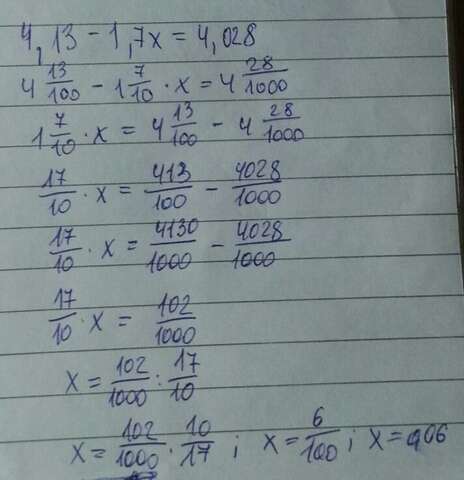 4,13 - 1,7x = 4,028
4 13/100 - 1 7/10 · x = 4 28/1000
1 7/10 · x = 4 13/100 - 4 28/1000
17/10 · x = 413/100 - 4028/1000
17/10 · x = 4130/1000 - 4028/1000
17/10 · x = 102/1000
x = 102/1000 : 17/10
x = 102/1000 · 10/17 ; x = 6/100 ; x = 0,06